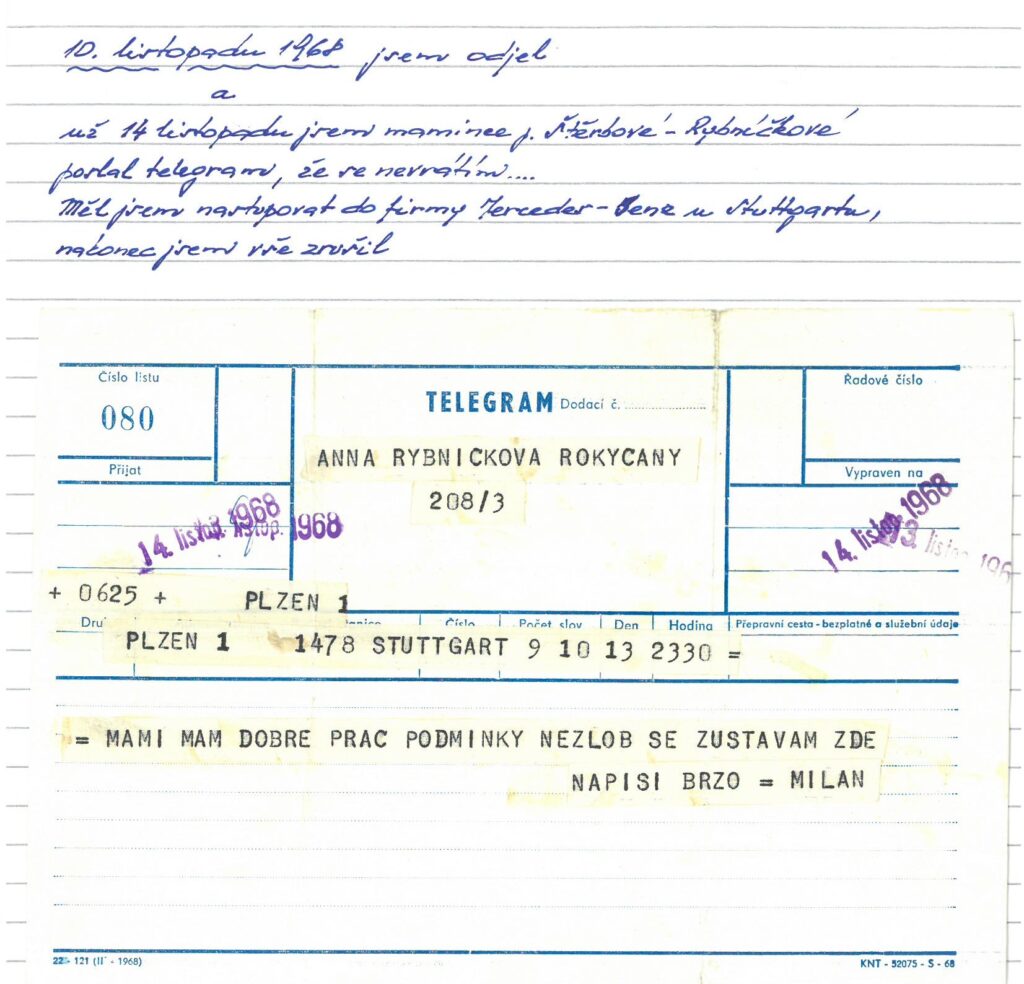 10. listopadu 1968 jsem odjel
a
už 14 listopadu jsem mamince p. Štěrbové - Rybníčkové
poslal telegram, že se nevrátím....
Měl jsem nastupovat do firmy Mercedes - Benz u Stuttgartu,
nakonec jsem vše zrušil
Číslo listu
080
Přijat
TELEGRAM Dodací č.
Řadové číslo
Vypraven na
ANNA RYBNICKOVA ROKYCANY
208/3
14. listop. 1968
listop. 1968
14. listop. 1968
13. listop. 196
+ 0625 + PLZEN 1
Dru Číslo Počet slov Den Hodina Přepravní cesta - bezplatné a služební údaje
PLZEN 1 1478 STUTTGART 9 10 13 2330 =
= MAMI MAM DOBRE PRAC PODMINKY NEZLOB SE ZUSTAVAM ZDE
NAPISI BRZO = MILAN
22 - 121 (II - 1968)
KNT - 52075 - S - 68